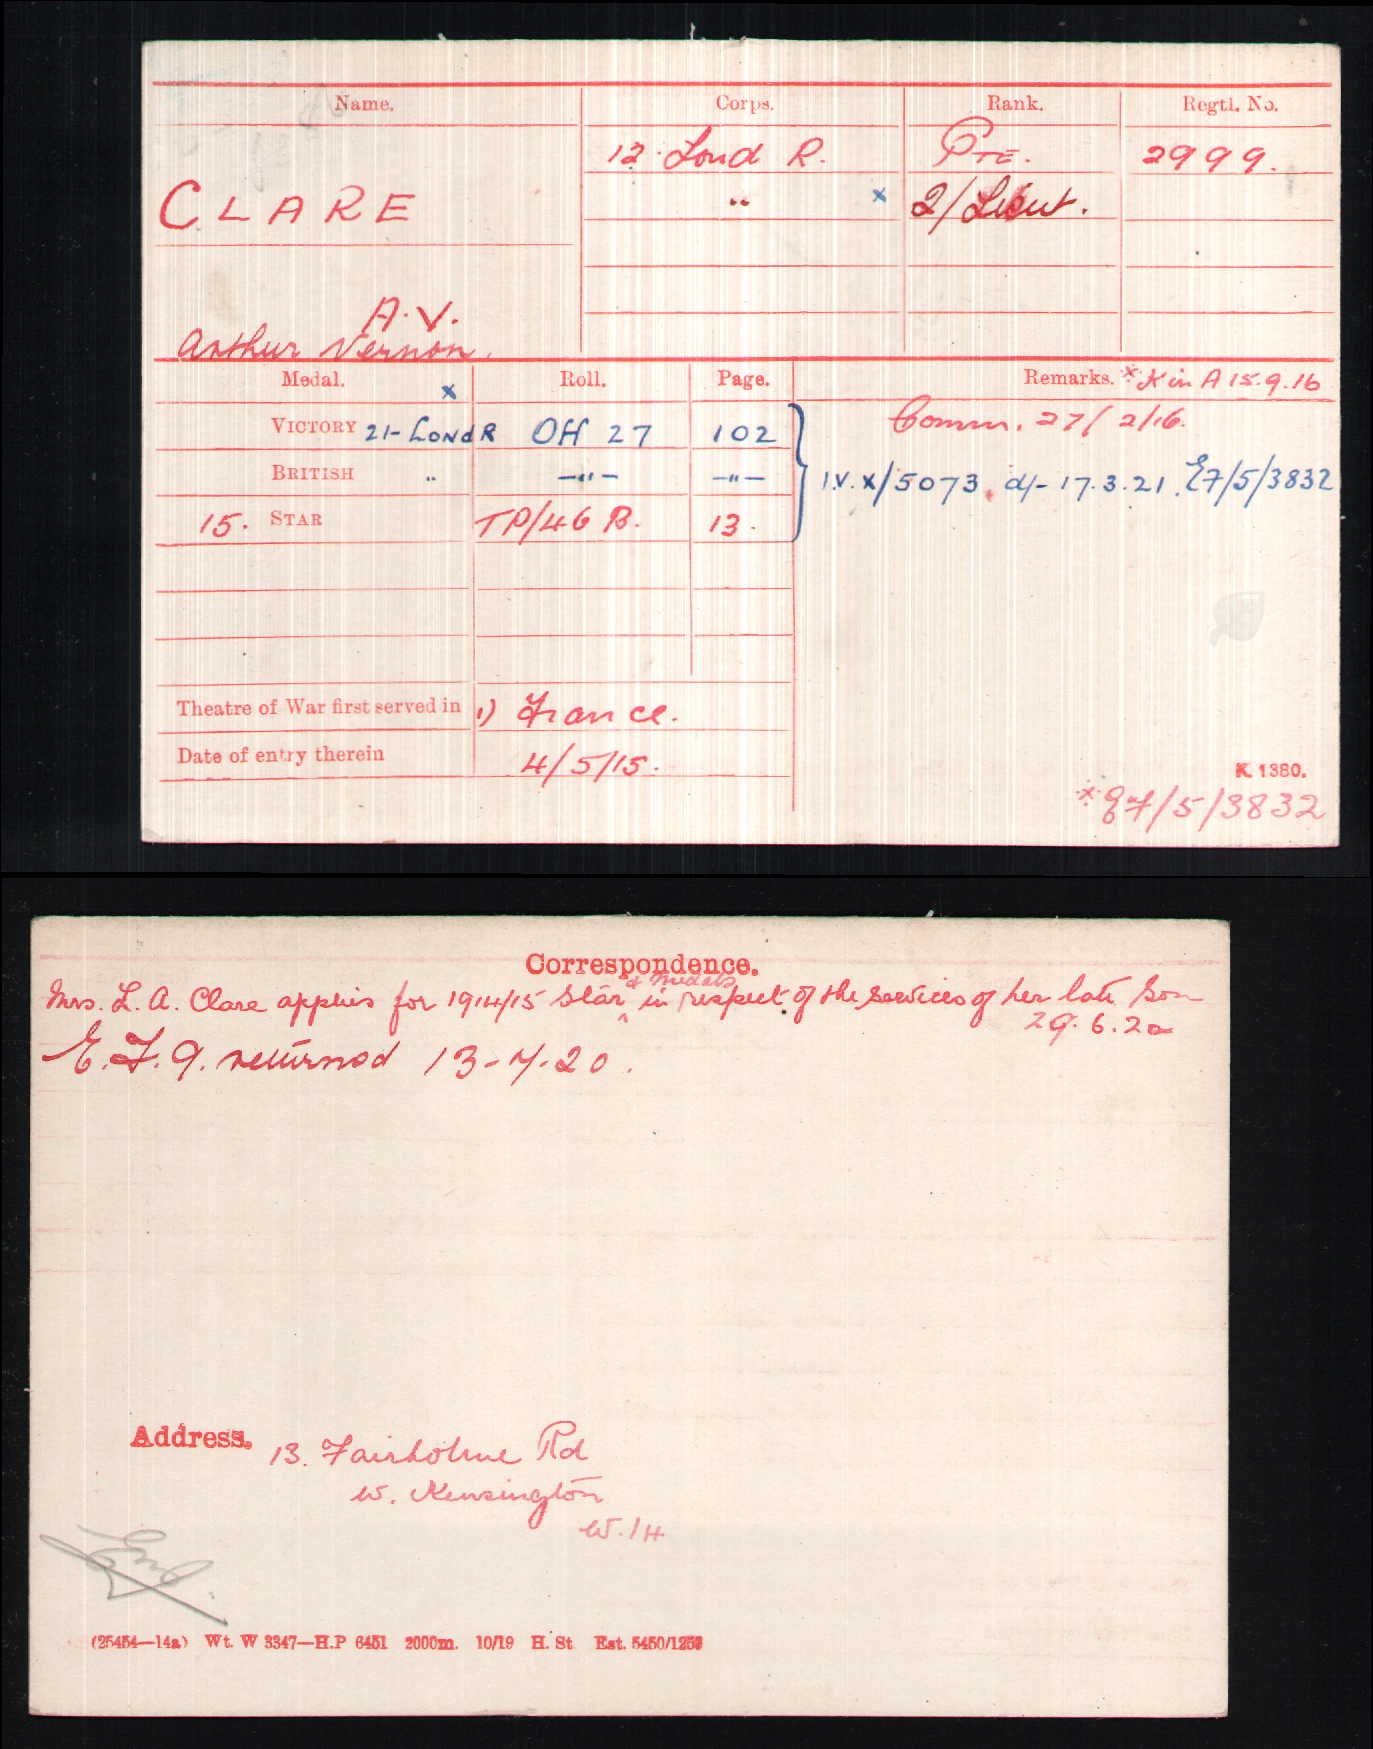 Name. Corps. Rank. Regtl. No.
12. Lond R. Pte. 2999.
CLARE " x 2/Lieut.
A. V.
Arthur Vernon.
Medal. x Roll. Page. Remarks. * K in A 15.9.16
Comm. 27/2/16.
VICTORY 21-Lond R OH 27 102
BRITISH " —"— —"— I.V. x/5073. d/- 17.3.21. E7/5/3832
15. STAR TP/46 B. 13.
Theatre of War first served in 1) France.
Date of entry therein 4/5/15.
K 1380.
* E7/5/3832
Correspondence.
& Medals
Mrs. L. A. Clare applies for 1914/15 Star ^ in respect of the services of her late Son
29.6.20
E. F. 9. returned 13-7-20.
Address. 13. Fairholme Rd
W. Kensington
W. 14
(25454—14a) Wt. W 3347—H.P 6451 2000m. 10/19 H. St Est. 5450/125